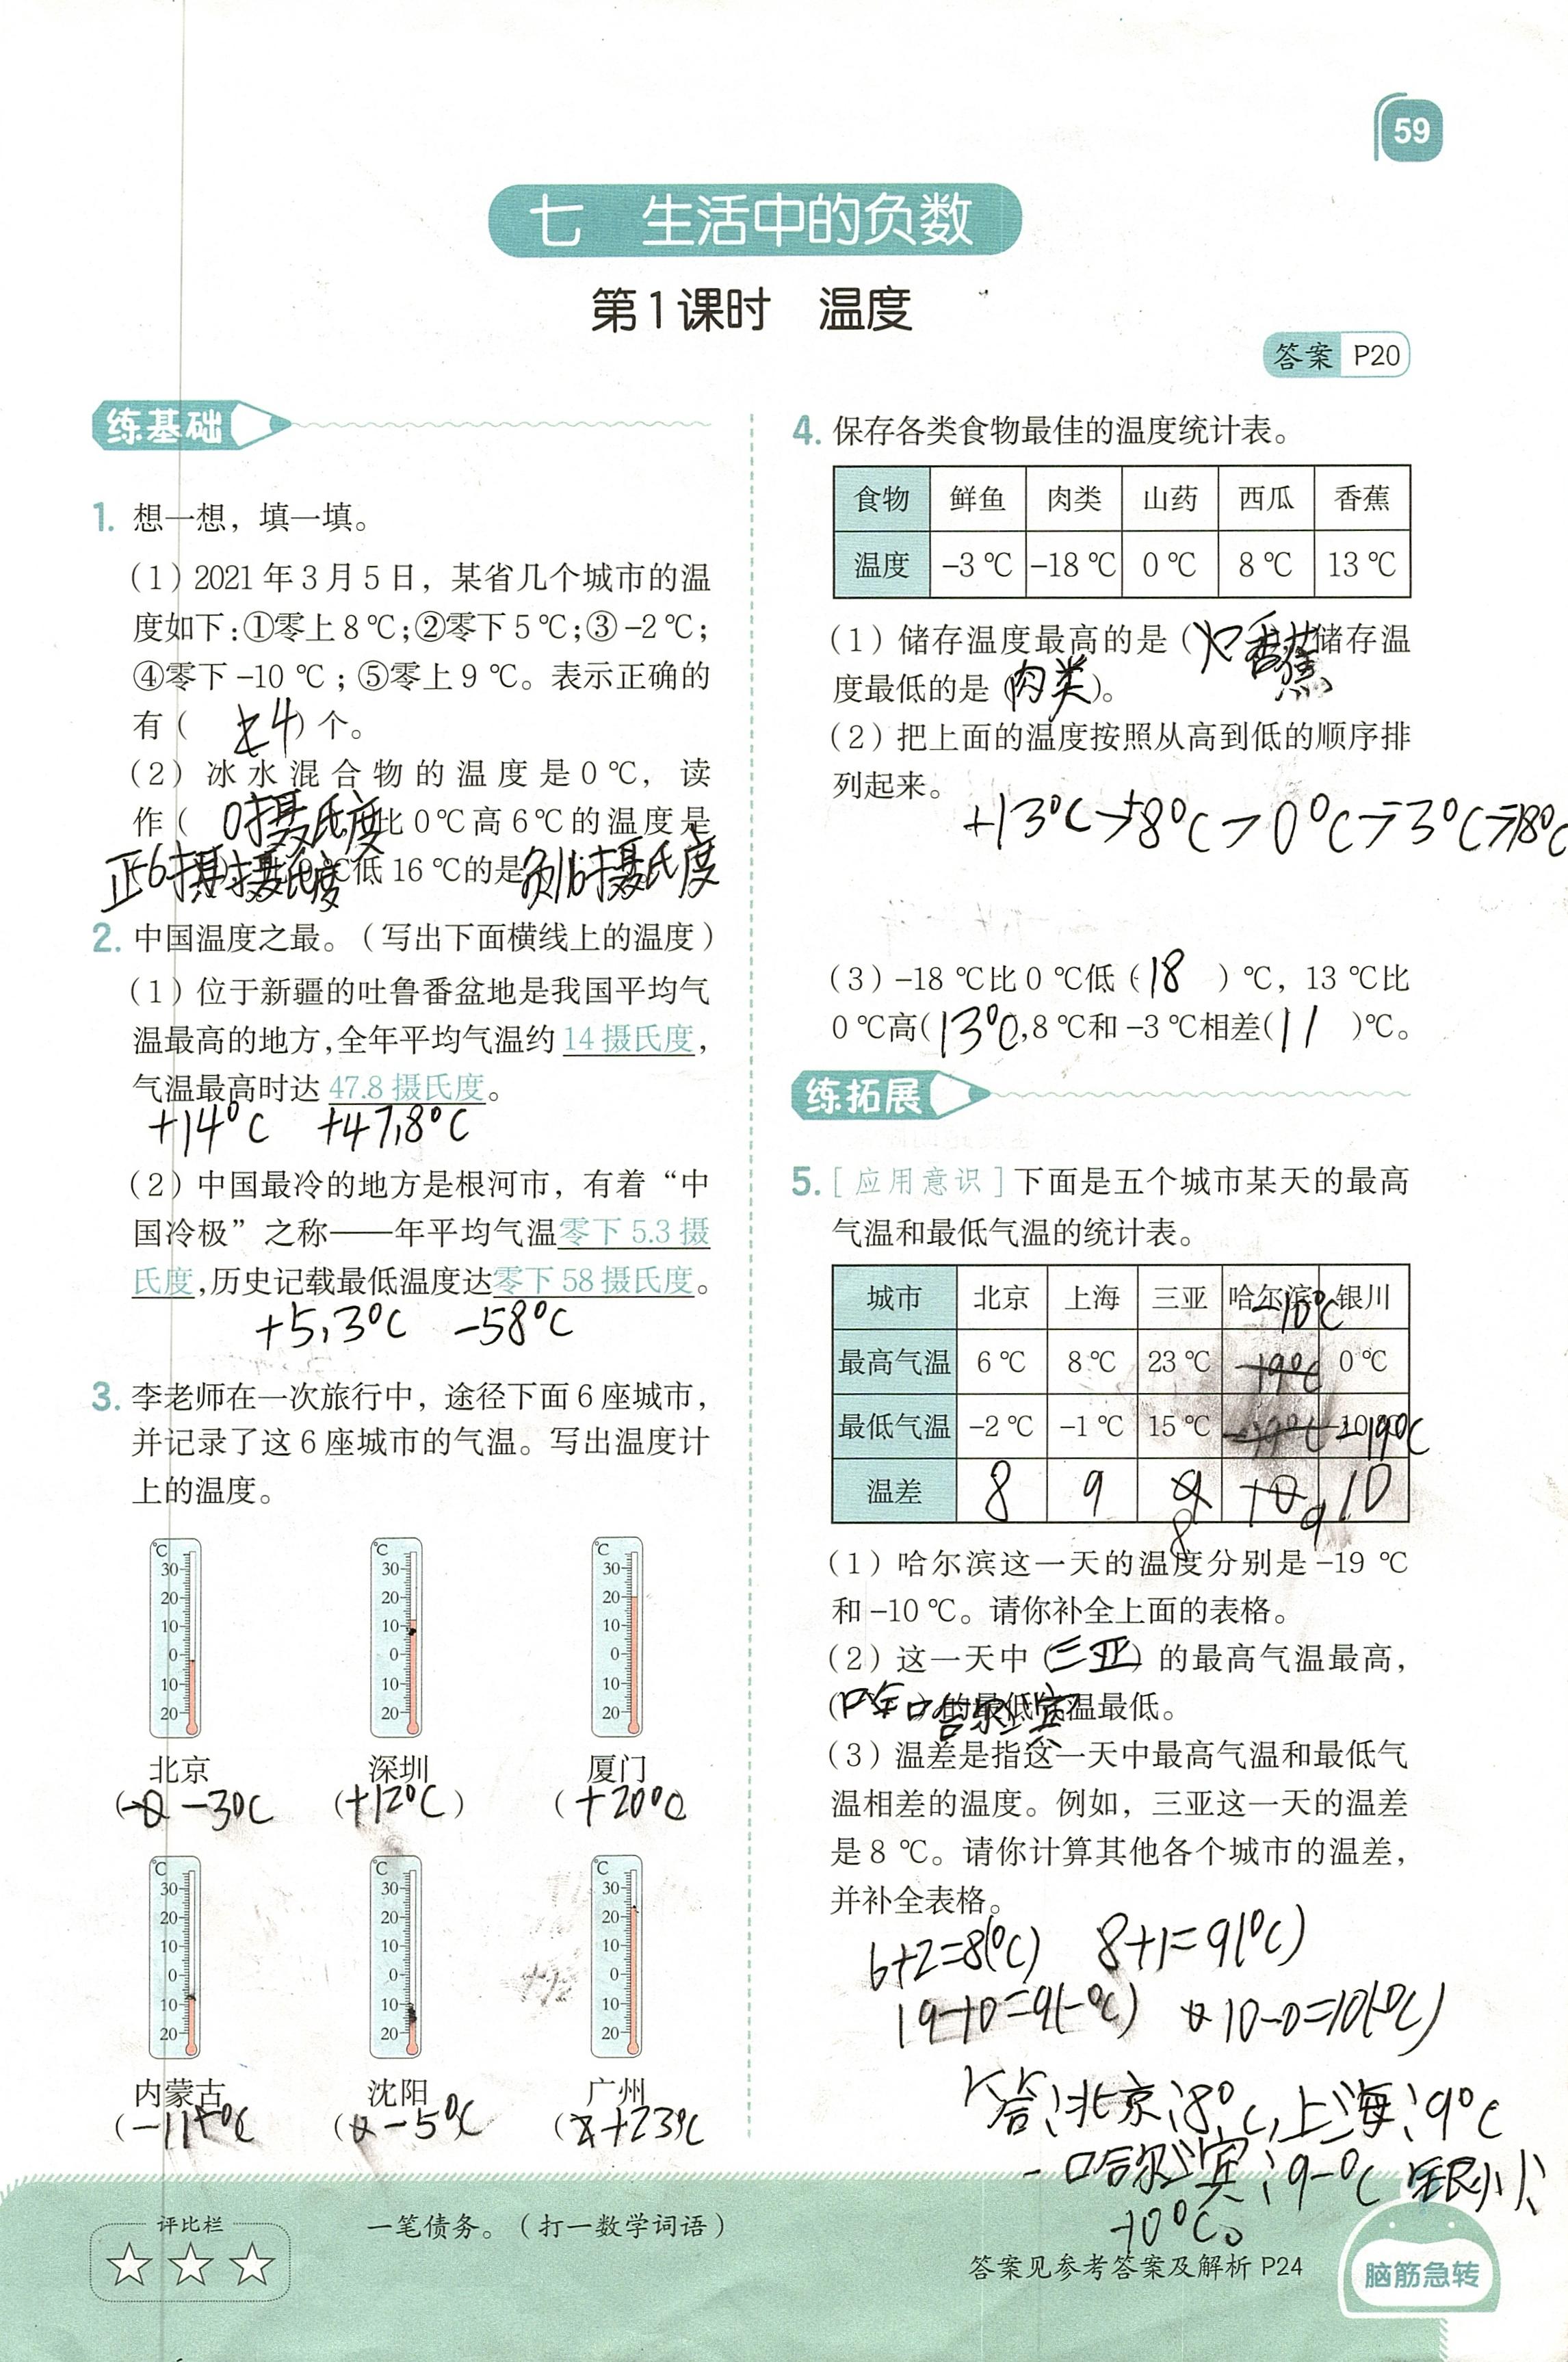 59
七 生活中的负数
第1课时 温度
答案 P20
练基础
1. 想一想，填一填。
(1) 2021年3月5日，某省几个城市的温
度如下:①零上8℃;②零下5℃;③-2℃;
④零下-10℃;⑤零上9℃。表示正确的
有( 4)个。
(2) 冰水混合物的温度是0℃，读
作( 0摄氏度 比0℃高6℃的温度是
正6摄氏度 低16℃的是 负16摄氏度
2. 中国温度之最。(写出下面横线上的温度)
(1) 位于新疆的吐鲁番盆地是我国平均气
温最高的地方,全年平均气温约14摄氏度,
气温最高时达47.8摄氏度。
+14℃ +47.8℃
(2) 中国最冷的地方是根河市，有着“中
国冷极”之称——年平均气温零下5.3摄
氏度,历史记载最低温度达零下58摄氏度。
+5.3℃ -58℃
3. 李老师在一次旅行中，途径下面6座城市，
并记录了这6座城市的气温。写出温度计
上的温度。
℃ ℃ ℃
30 30 30
20 20 20
10 10 10
0 0 0
10 10 10
20 20 20
北京 深圳 厦门
( -3℃ (+12℃) (+20℃
℃ ℃ ℃
30 30 30
20 20 20
10 10 10
0 0 0
10 10 10
20 20 20
内蒙古 沈阳 广州
( ( -5℃ ( +23℃
4. 保存各类食物最佳的温度统计表。
食物 鲜鱼 肉类 山药 西瓜 香蕉
温度 -3℃ -18℃ 0℃ 8℃ 13℃
(1) 储存温度最高的是( 香蕉 储存温
度最低的是(肉类)。
(2) 把上面的温度按照从高到低的顺序排
列起来。
+13℃>+8℃>0℃>-3℃>-18℃
(3) -18℃比0℃低(18 )℃，13℃比
0℃高(13℃,8℃和-3℃相差(11 )℃。
练拓展
5. [应用意识]下面是五个城市某天的最高
气温和最低气温的统计表。
城市 北京 上海 三亚 哈尔滨 银川
最高气温 6℃ 8℃ 23℃ -10℃ 0℃
最低气温 -2℃ -1℃ 15℃ -19℃
温差 8 9 8 9 10
(1) 哈尔滨这一天的温度分别是-19℃
和-10℃。请你补全上面的表格。
(2) 这一天中(三亚)的最高气温最高，
( 哈尔滨 的最低气温最低。
(3) 温差是指这一天中最高气温和最低气
温相差的温度。例如，三亚这一天的温差
是8℃。请你计算其他各个城市的温差，
并补全表格。
6+2=8(℃) 8+1=9(℃)
19-10=9(-℃) 10-0=10(-℃)
答:北京:8℃,上海:9℃
哈尔滨:9-℃ 银川:
-10℃。
评比栏
一笔债务。(打一数学词语)
答案见参考答案及解析 P24
脑筋急转